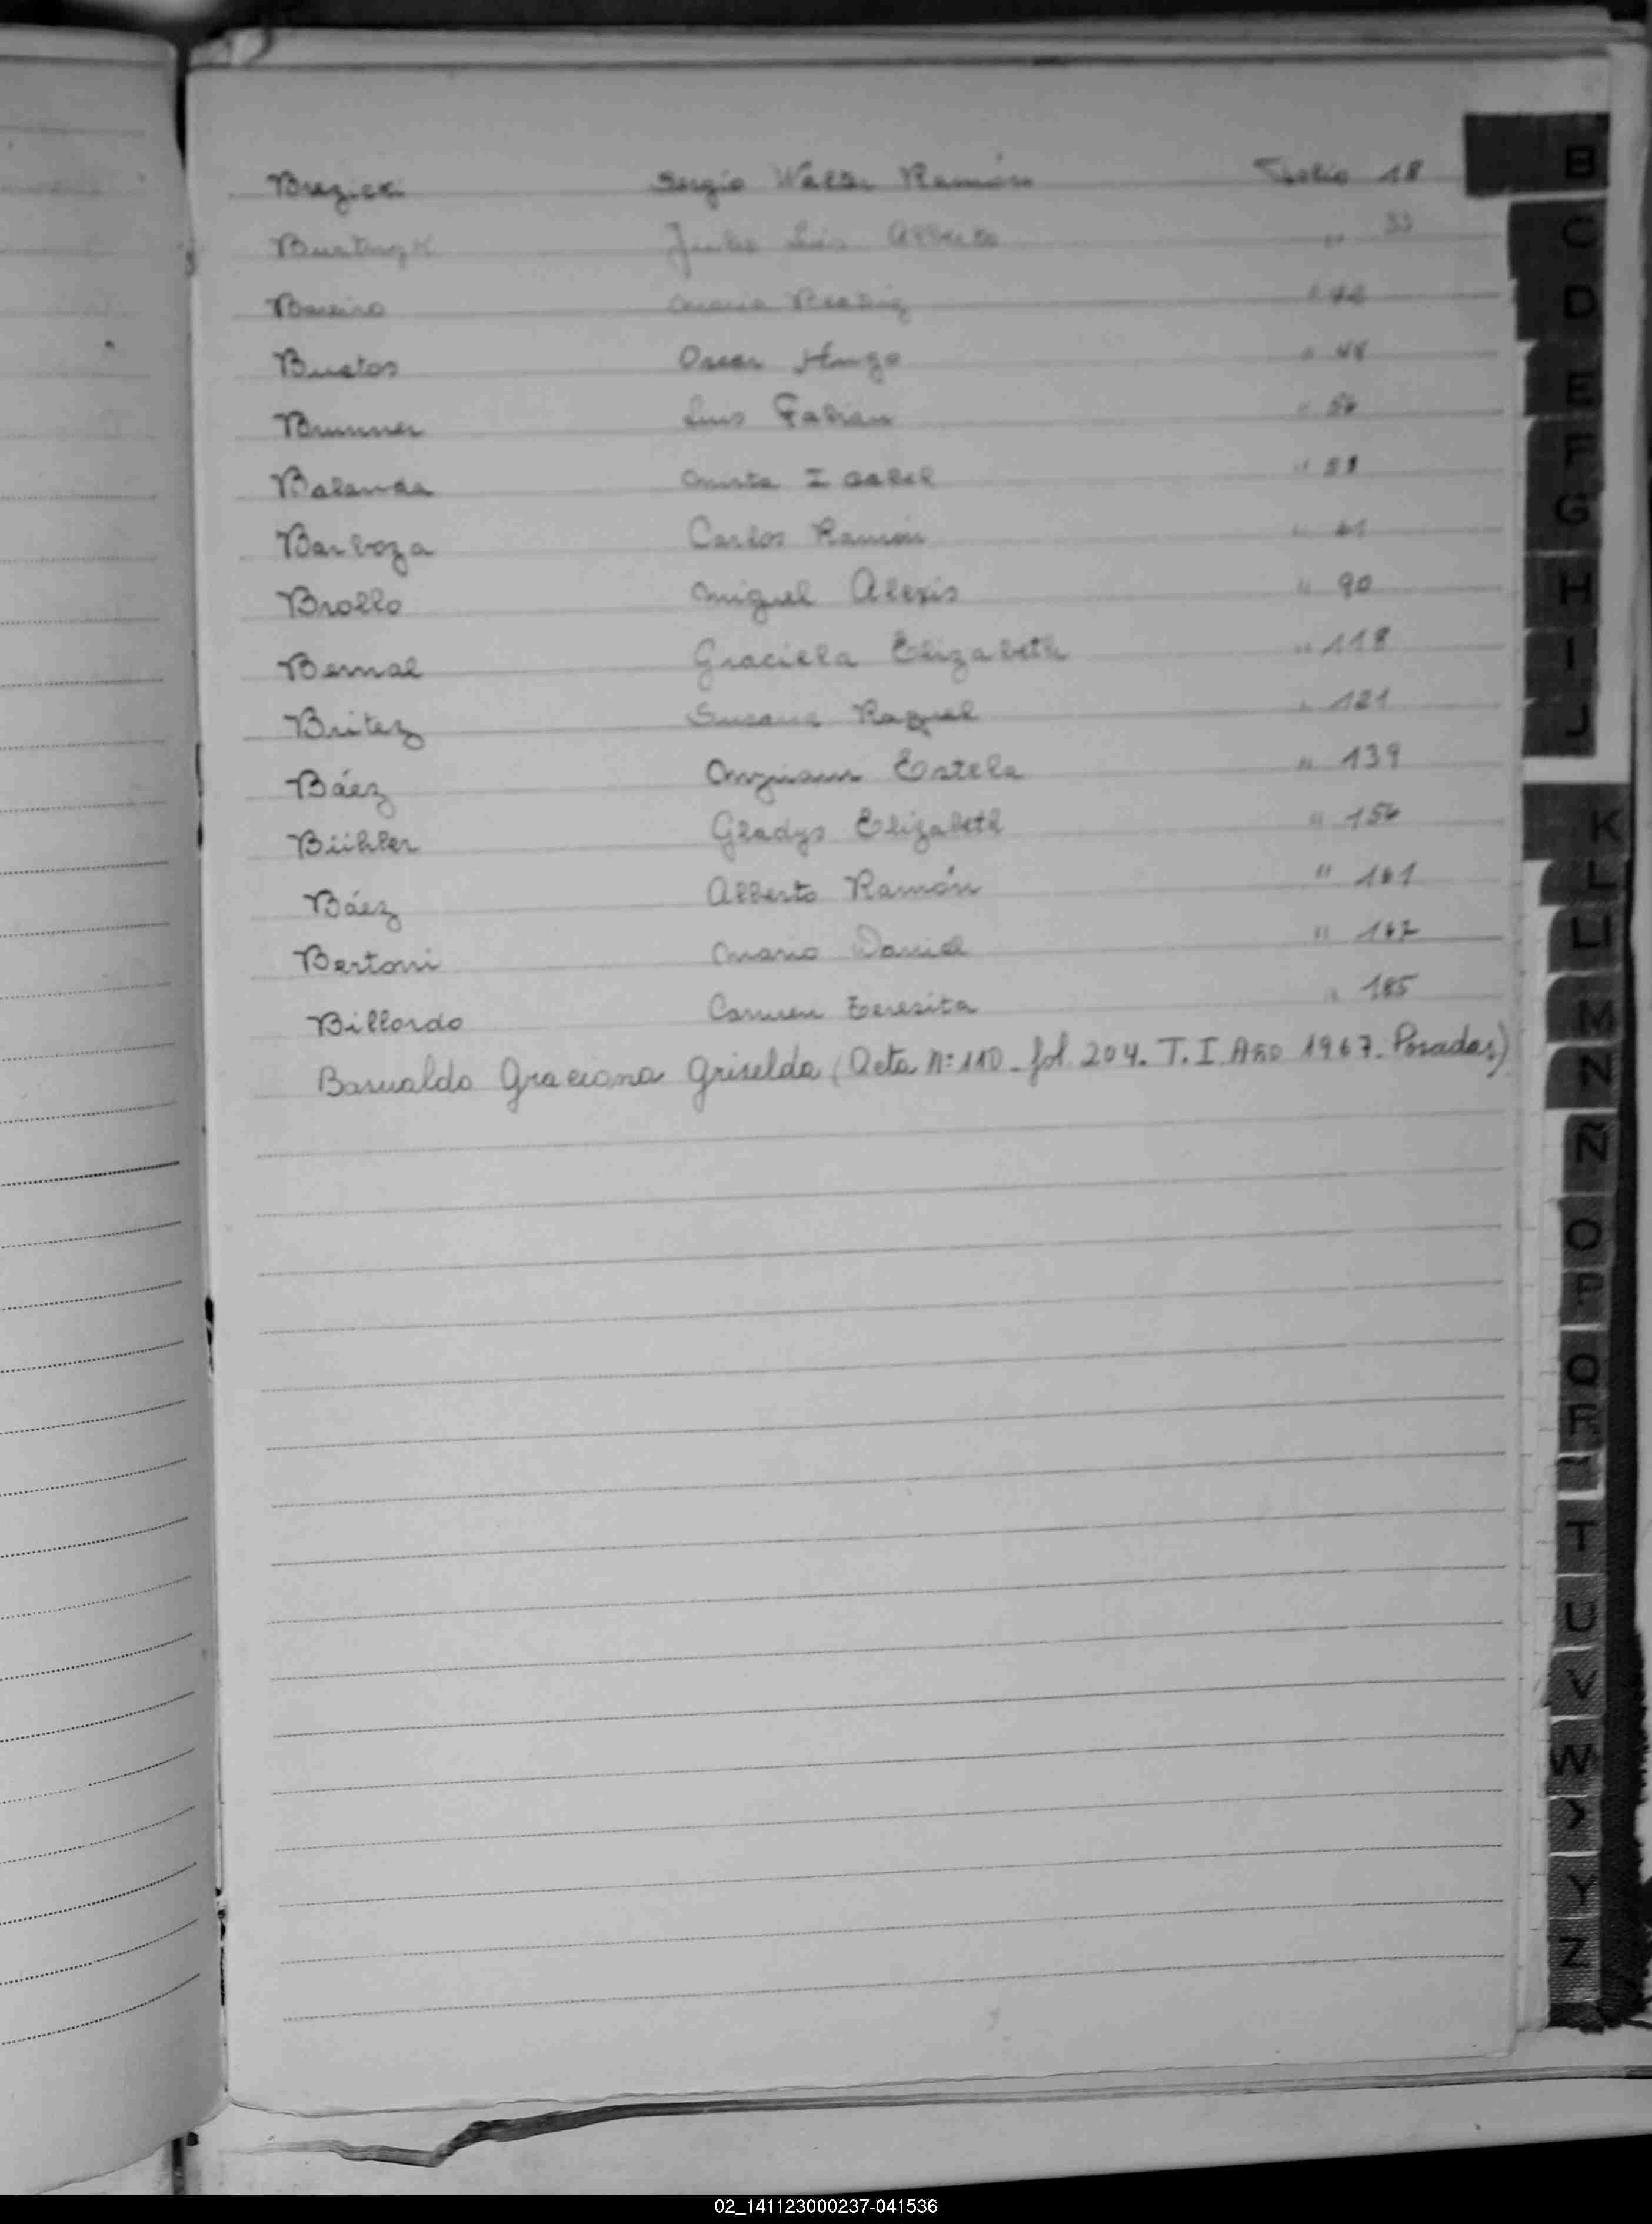 Brezicki Sergio Walter Ramón Folio 18
Burtnyk Julio Luis Alberto " 33
Bareiro Maria Beatriz "
Bustos Oscar Hugo " 44
Brunner Luis Fabian " 56
Balanda Mirta Isabel " 58
Barboza Carlos Ramón " 61
Brollo Miguel Alexis " 90
Bernal Graciela Elizabeth " 118
Britez Susana Raquel " 121
Báez Myriam Estela " 139
Bühler Gladys Elizabeth " 156
Báez Alberto Ramón " 161
Bertoni Mario Daniel " 167
Billordo Carmen Teresita " 185
Basualdo Graciana Griselda (Acta N: 110 - fol. 204. T. I. Año 1967. Posadas)
B
C
D
E
F
G
H
I
J
K
L
LL
M
N
Ñ
O
P
Q
R
T
U
V
W
Y
Z
02_141123000237-041536